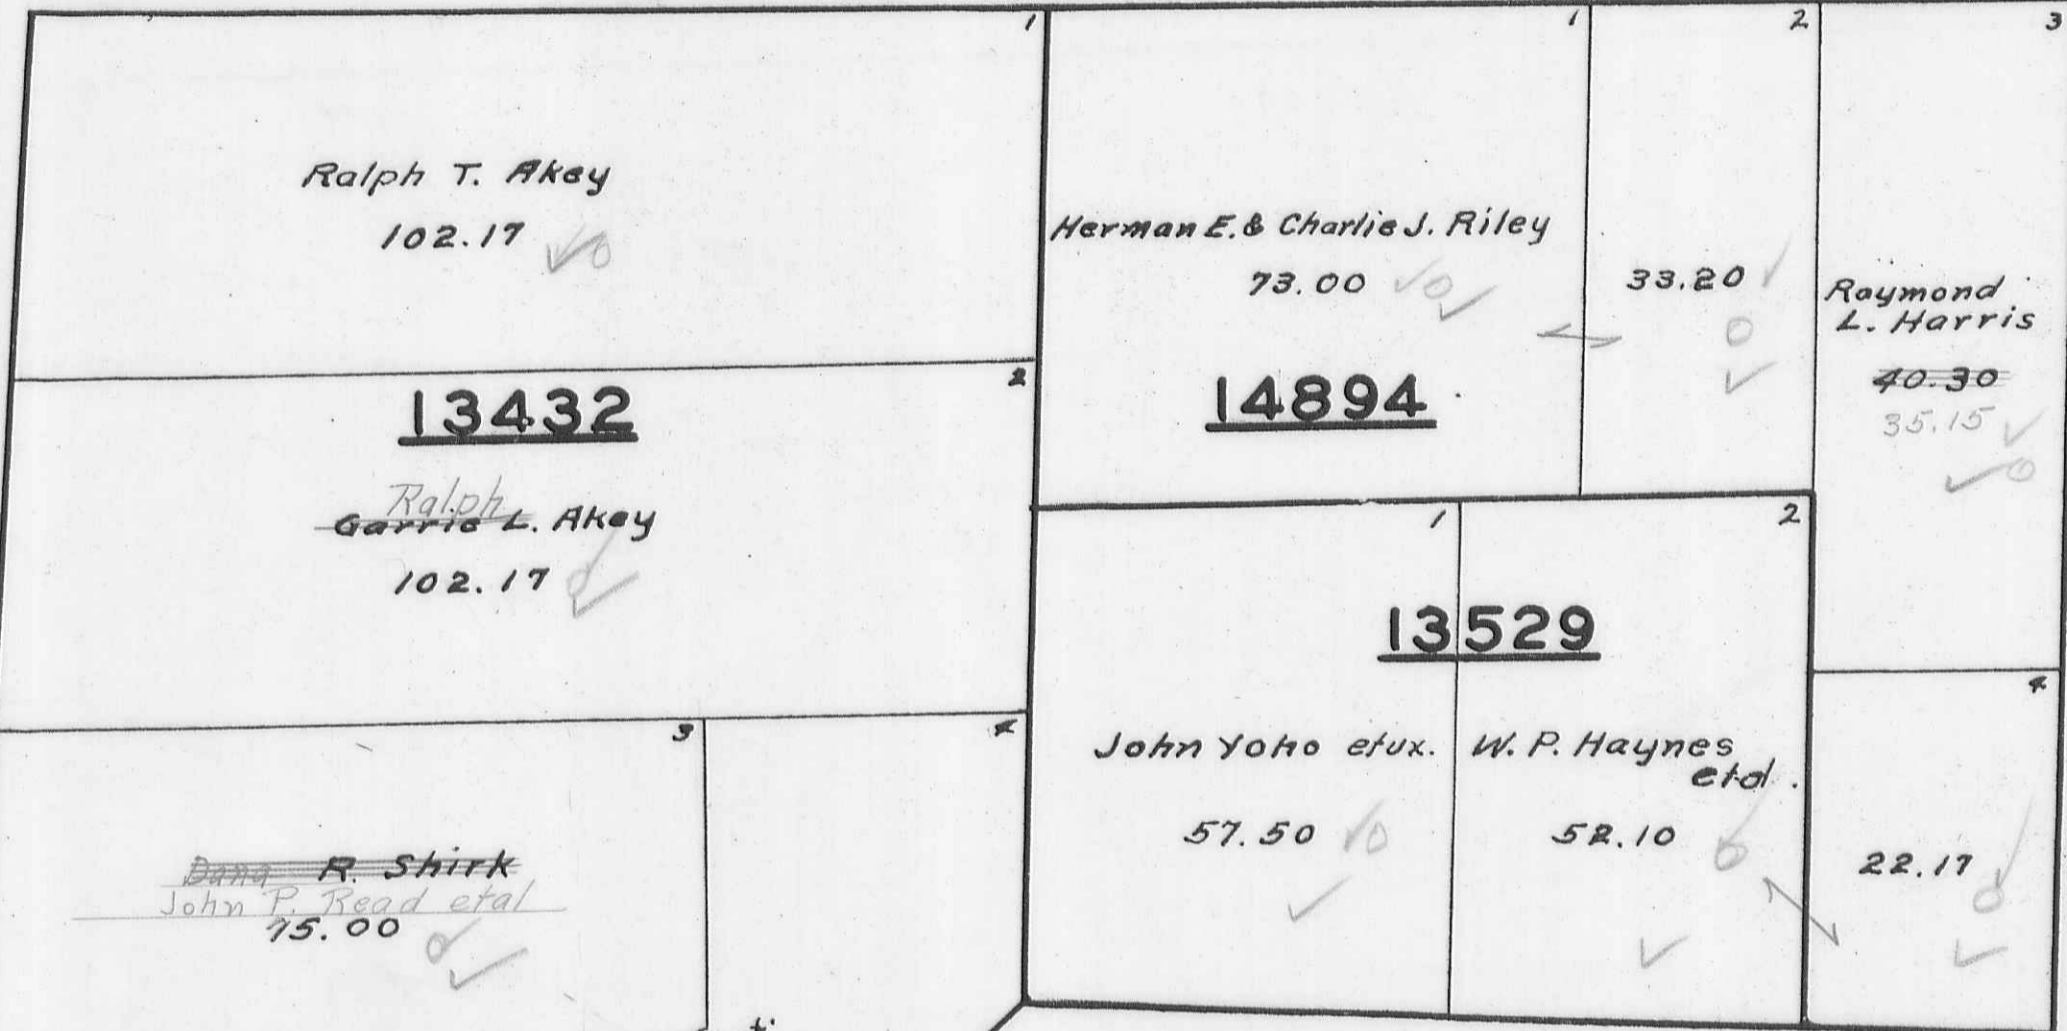 1
Ralph T. Akey
102.17
13432
2
Ralph
Garrie L. Akey
102.17
3
Dana R. Shirk
John P. Read etal
75.00
4
1
Herman E. & Charlie J. Riley
73.00
14894
2
33.20
3
Raymond
L. Harris
40.30
35.15
1
13529
John Yoho etux.
57.50
2
W. P. Haynes
etal.
52.10
4
22.17